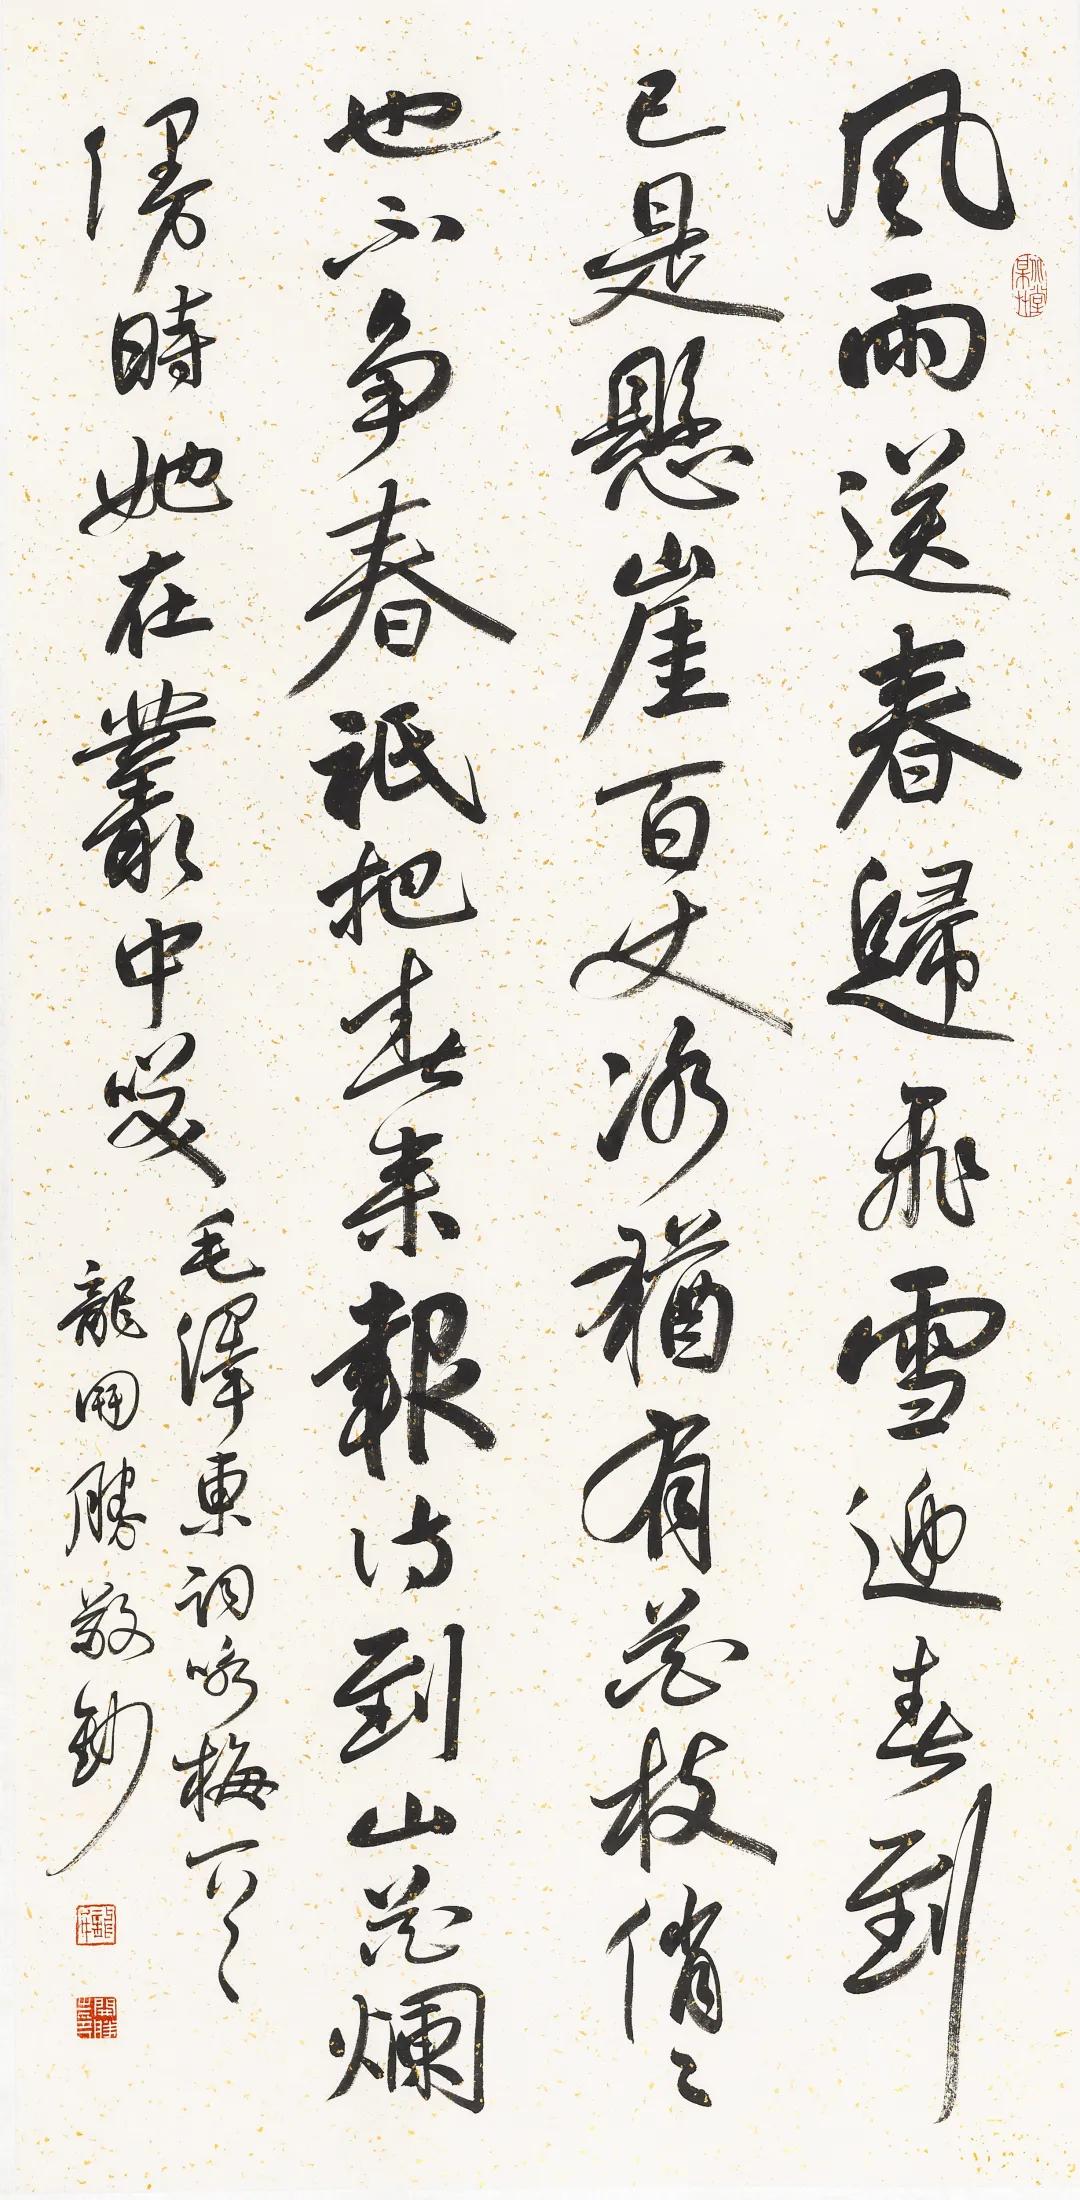 風雨送春歸飛雪迎春到
已是懸崖百丈冰猶有花枝俏〻
也不争春祇把春来報待到山花爛
漫時她在叢中咲
毛澤東詞咏梅一首
龍開勝敬鈔